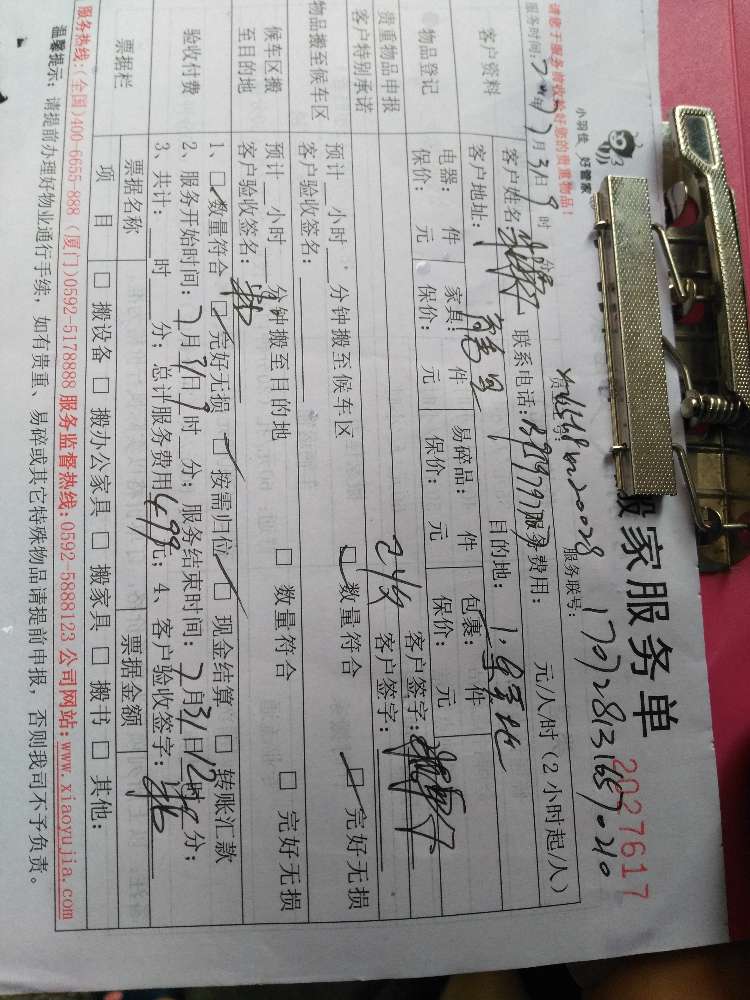 小羽佳 好管家
搬家服务单
2027617
请您于服务前收捡好您的贵重物品!
服务联号: 170728131657010
服务时间: 年7月31日9时 分
客户资料
客户姓名: 联系电话: 服务费用: 元/人/时(2小时起/人)
客户地址: 目的地:
物品登记
电器: 件 家具: 件 易碎品: 件 包裹: 件
保价: 元 保价: 元 保价: 元 保价: 元
贵重物品申报 客户签字:
客户特别承诺 客户签字:
物品搬至候车区
预计__小时__分钟搬至候车区 □ 数量符合 □ 完好无损
客户验收签名:
候车区搬至目的地
预计__小时__分钟搬至目的地 □ 数量符合 □ 完好无损
客户验收签名:
验收付费
1、□ 数量符合 □ 完好无损 □ 按需归位 □ 现金结算 □ 转账汇款
2、服务开始时间:7月31日9时 分; 服务结束时间:7月31日12时 分;
3、共计:__时__分; 总计服务费用499元; 4、客户验收签字:
票据栏
票据名称 票据金额
项目 □ 搬设备 □ 搬办公家具 □ 搬家具 □ 搬书 □ 其他:
服务热线:(全国)400-6655-888 (厦门)0592-5178888 服务监督热线:0592-5888123 公司网站:www.xiaoyujia.com
温馨提示: 请提前办理好物业通行手续, 如有贵重、易碎或其它特殊物品请提前申报, 否则我司不予负责。